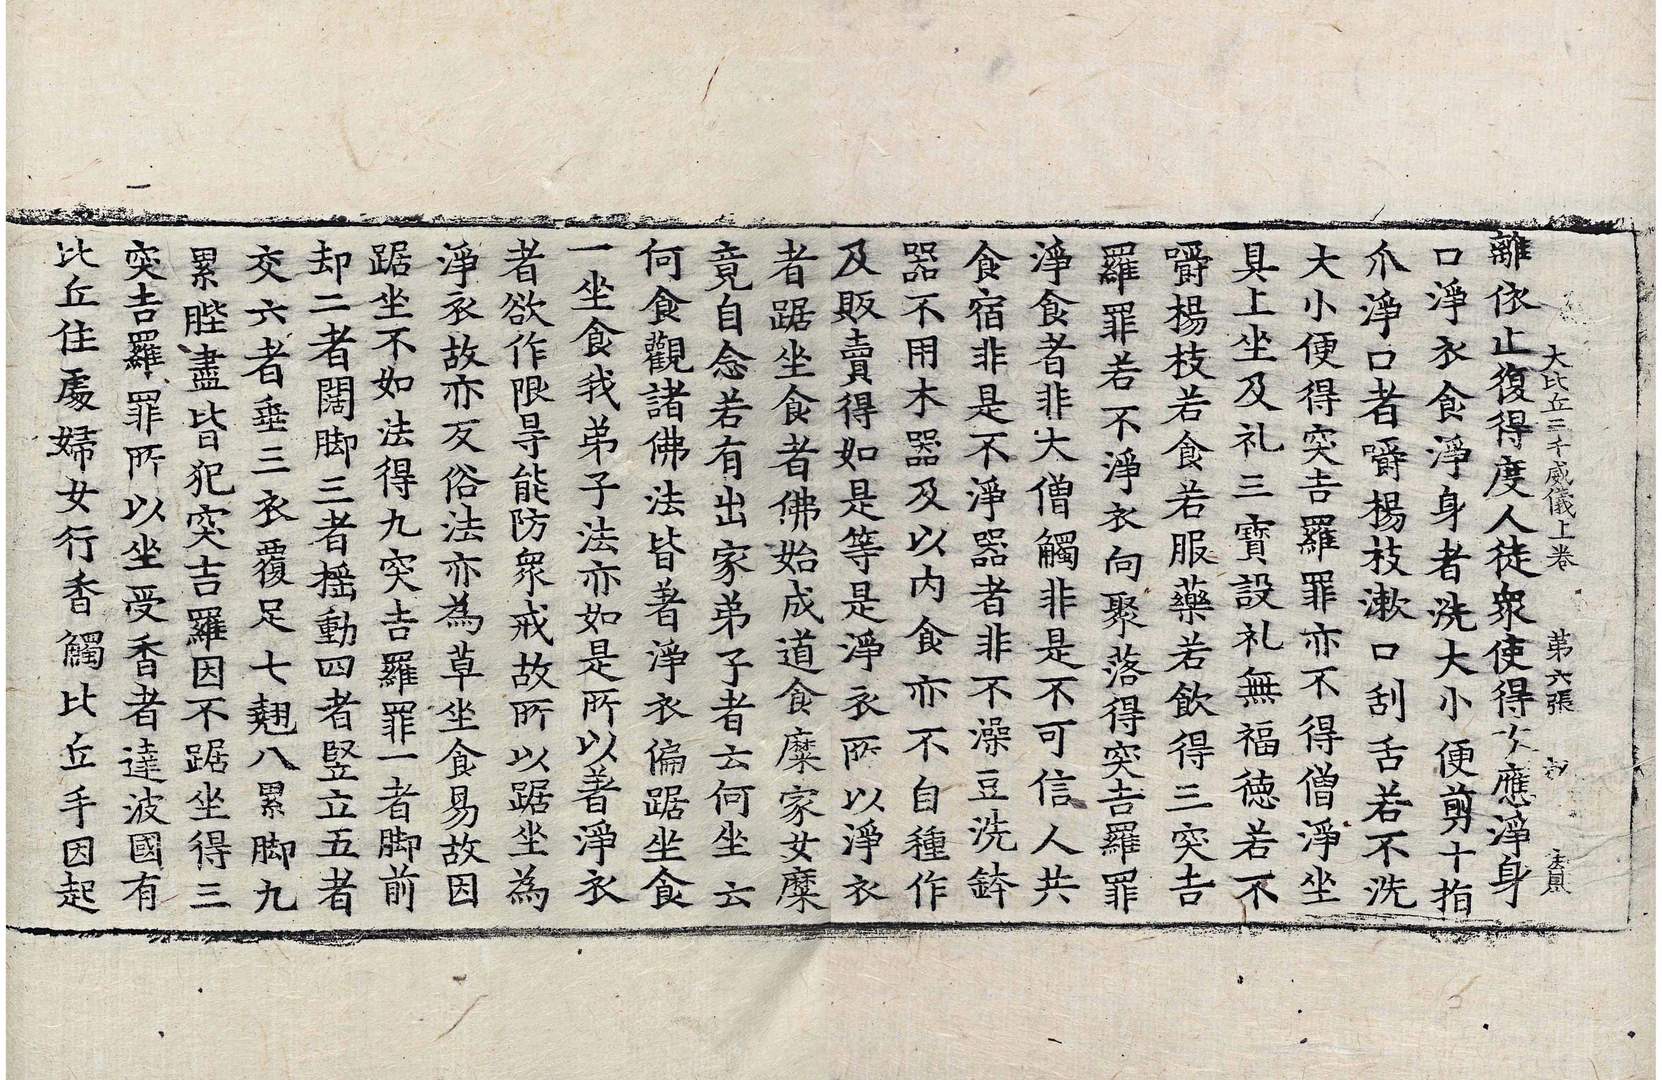 大比丘三千威儀上卷 第六張
離依止復得度人徒衆使得次應淨身
口淨衣食淨身者洗大小便剪十指
爪淨口者嚼楊枝漱口刮舌若不洗
大小便得突吉羅罪亦不得僧淨坐
具上坐及礼三寶設礼無福德若不
嚼楊枝若食若服藥若飲得三突吉
羅罪若不淨衣向聚落得突吉羅罪
淨食者非大僧觸非是不可信人共
食宿非是不淨器者非不澡豆洗鉢
器不用木器及以內食亦不自種作
及販賣得如是等是淨衣所以淨衣
者踞坐食者佛始成道食糜家女糜
竟自念若有出家弟子者云何坐云
何食觀諸佛法皆著淨衣偏踞坐食
一坐食我弟子法亦如是所以著淨衣
者欲作限㝵能防衆戒故所以踞坐為
淨衣故亦反俗法亦為草坐食易故因
踞坐不如法得九突吉羅罪一者脚前
却二者闊脚三者搖動四者竪立五者
交六者垂三衣覆足七翹八累脚九
累䏶盡皆犯突吉羅因不踞坐得三
突吉羅罪所以坐受香者達波國有
比丘住處婦女行香觸比丘手因起